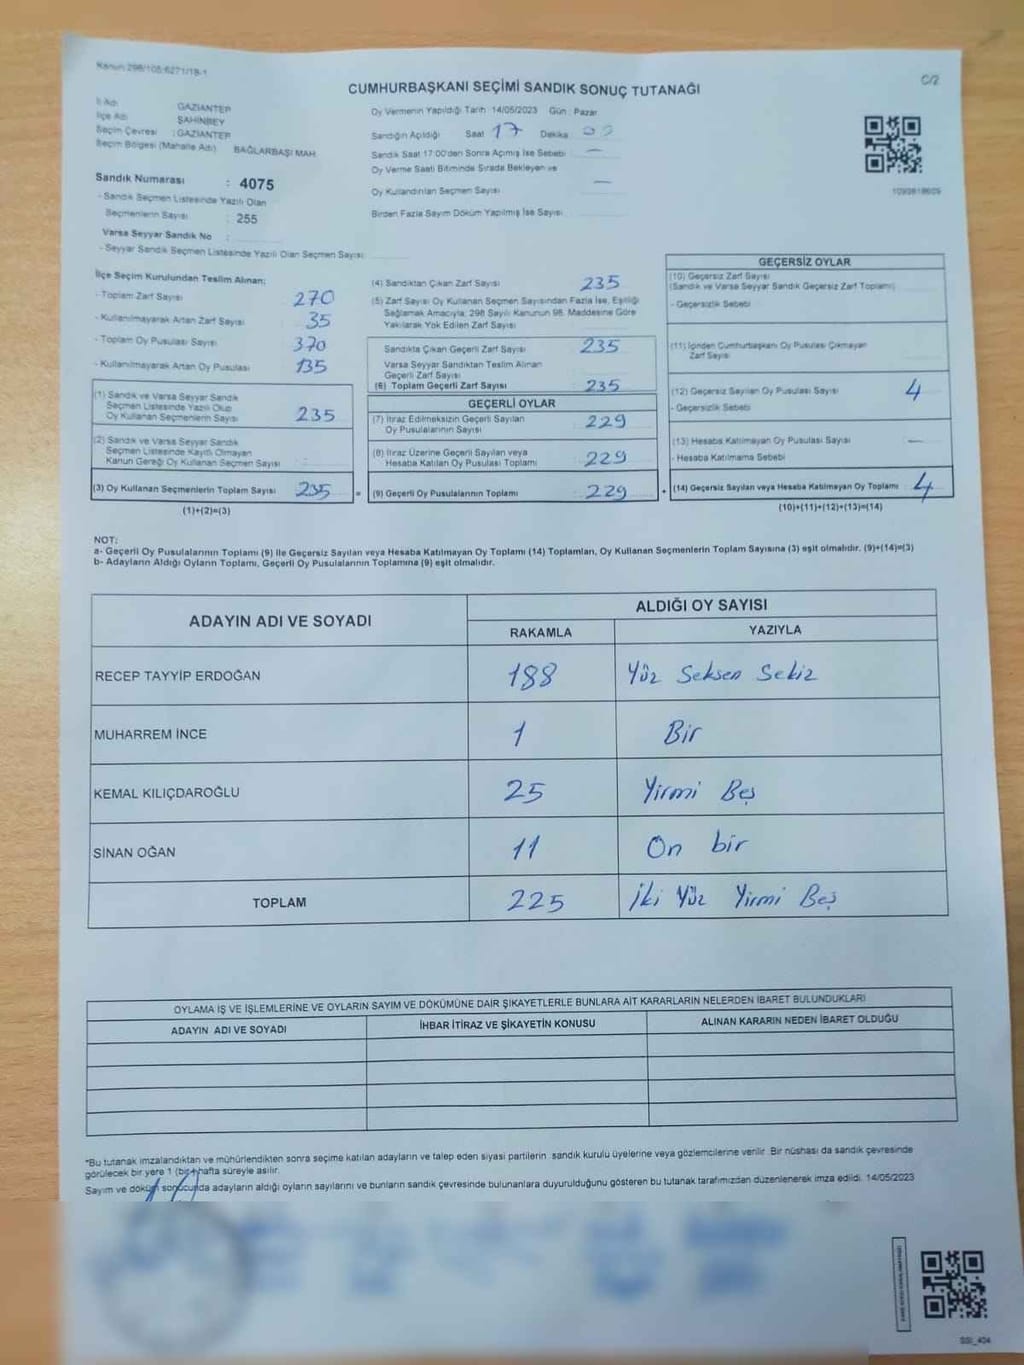 Kanun:298/105;6271/18-1
C/2
CUMHURBAŞKANI SEÇİMİ SANDIK SONUÇ TUTANAĞI
İl Adı GAZİANTEP
İlçe Adı ŞAHİNBEY
Seçim Çevresi : GAZİANTEP
Seçim Bölgesi (Mahalle Adı) BAĞLARBAŞI MAH.
Oy Vermenin Yapıldığı Tarih 14/05/2023 Gün : Pazar
Sandığın Açıldığı Saat 17 Dakika 00
Sandık Saat 17:00'den Sonra Açılmış İse Sebebi —
Oy Verme Saati Bitiminde Sırada Bekleyen ve
Oy Kullandırılan Seçmen Sayısı —
Birden Fazla Sayım Döküm Yapılmış İse Sayısı
Sandık Numarası : 4075
- Sandık Seçmen Listesinde Yazılı Olan
Seçmenlerin Sayısı : 255
Varsa Seyyar Sandık No :
- Seyyar Sandık Seçmen Listesinde Yazılı Olan Seçmen Sayısı
İlçe Seçim Kurulundan Teslim Alınan;
- Toplam Zarf Sayısı 270
- Kullanılmayarak Artan Zarf Sayısı 35
- Toplam Oy Pusulası Sayısı 370
- Kullanılmayarak Artan Oy Pusulası 135
(1) Sandık ve Varsa Seyyar Sandık
Seçmen Listesinde Yazılı Olup
Oy Kullanan Seçmenlerin Sayısı 235
(2) Sandık ve Varsa Seyyar Sandık
Seçmen Listesinde Kayıtlı Olmayan
Kanun Gereği Oy Kullanan Seçmen Sayısı
(3) Oy Kullanan Seçmenlerin Toplam Sayısı 235
(1)+(2)=(3)
(4) Sandıktan Çıkan Zarf Sayısı 235
(5) Zarf Sayısı Oy Kullanan Seçmen Sayısından Fazla İse, Eşitliği
Sağlamak Amacıyla, 298 Sayılı Kanunun 98. Maddesine Göre
Yakılarak Yok Edilen Zarf Sayısı
Sandıkta Çıkan Geçerli Zarf Sayısı 235
Varsa Seyyar Sandıktan Teslim Alınan
Geçerli Zarf Sayısı
(6) Toplam Geçerli Zarf Sayısı 235
GEÇERLİ OYLAR
(7) İtiraz Edilmeksizin Geçerli Sayılan
Oy Pusulalarının Sayısı 229
(8) İtiraz Üzerine Geçerli Sayılan veya
Hesaba Katılan Oy Pusulası Toplamı 229
= (9) Geçerli Oy Pusulalarının Toplamı 229 +
GEÇERSİZ OYLAR
(10) Geçersiz Zarf Sayısı
(Sandık ve Varsa Seyyar Sandık Geçersiz Zarf Toplamı)
- Geçersizlik Sebebi
(11) İçinden Cumhurbaşkanı Oy Pusulası Çıkmayan
Zarf Sayısı
(12) Geçersiz Sayılan Oy Pusulası Sayısı 4
- Geçersizlik Sebebi
(13) Hesaba Katılmayan Oy Pusulası Sayısı —
- Hesaba Katılmama Sebebi
(14) Geçersiz Sayılan veya Hesaba Katılmayan Oy Toplamı 4
(10)+(11)+(12)+(13)=(14)
NOT:
a- Geçerli Oy Pusulalarının Toplamı (9) ile Geçersiz Sayılan veya Hesaba Katılmayan Oy Toplamı (14) Toplamları, Oy Kullanan Seçmenlerin Toplam Sayısına (3) eşit olmalıdır. (9)+(14)=(3)
b- Adayların Aldığı Oyların Toplamı, Geçerli Oy Pusulalarının Toplamına (9) eşit olmalıdır.
ADAYIN ADI VE SOYADI
ALDIĞI OY SAYISI
RAKAMLA YAZIYLA
RECEP TAYYİP ERDOĞAN 188 Yüz Seksen Sekiz
MUHARREM İNCE 1 Bir
KEMAL KILIÇDAROĞLU 25 Yirmi Beş
SİNAN OĞAN 11 On bir
TOPLAM 225 İki Yüz Yirmi Beş
OYLAMA İŞ VE İŞLEMLERİNE VE OYLARIN SAYIM VE DÖKÜMÜNE DAİR ŞİKAYETLERLE BUNLARA AİT KARARLARIN NELERDEN İBARET BULUNDUKLARI
ADAYIN ADI VE SOYADI İHBAR İTİRAZ VE ŞİKAYETİN KONUSU ALINAN KARARIN NEDEN İBARET OLDUĞU
*Bu tutanak imzalandıktan ve mühürlendikten sonra seçime katılan adayların ve talep eden siyasi partilerin sandık kurulu üyelerine veya gözlemcilerine verilir. Bir nüshası da sandık çevresinde
görülecek bir yere 1 (bir) hafta süreyle asılır.
Sayım ve döküm sonucunda adayların aldığı oyların sayılarını ve bunların sandık çevresinde bulunanlara duyurulduğunu gösteren bu tutanak tarafımızdan düzenlenerek imza edildi. 14/05/2023